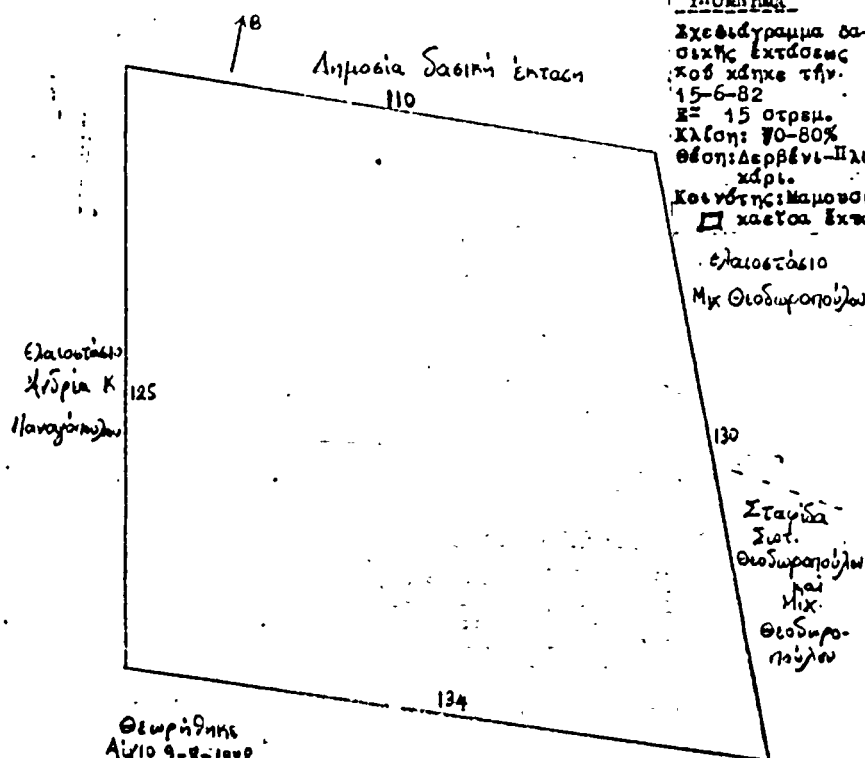 Β
Δημοσία δασική έκταση
110
ΥΠΟΜΝΗΜΑ
Σχεδιάγραμμα δα-
σικής εκτάσεως
πού κάηκε τήν.
15-6-82
Ε= 15 στρεμ.
Κλίση: 70-80%
θέση: Δερβένι-Πλι
κάρι.
Κοινότης: Μαμουσι
καείσα
ελαιοστάσιο
Μιχ Θεοδωροπούλου
Ελαιοστάσιο
Ανδρέα Κ
Παναγόπουλου
125
130
Σταφίδα
Σωτ.
Θεοδωροπούλου
καί
Μιχ.
Θεοδωρο-
πούλου
134
Θεωρήθηκε